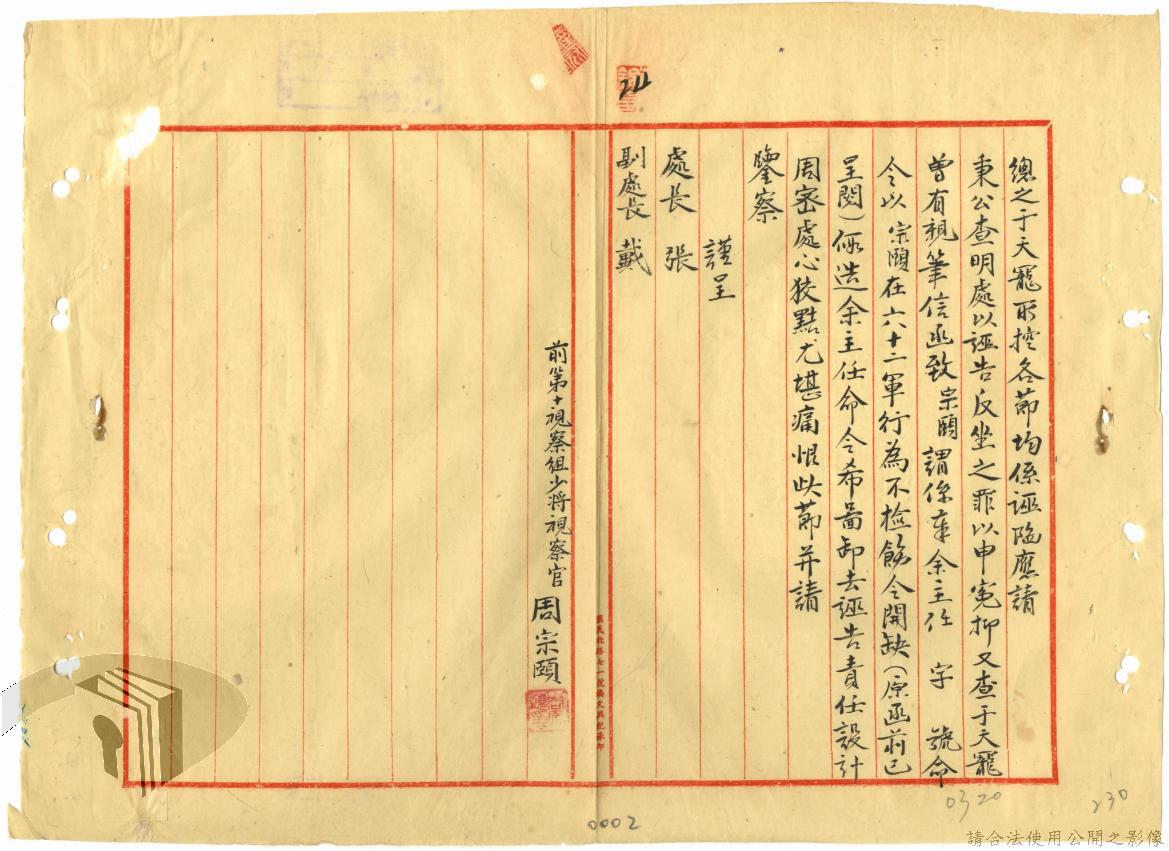 總之于天寵所控各節均係誣陷應請
秉公查明處以誣告反坐之罪以申寃抑又查于天寵
曾有親筆信函致宗頤謂係奉余主任　字　號命
令以宗頤在六十二軍行為不檢飭令開缺（原函前已
呈閱）偽造余主任命令希啚卸去誣告責任設計
周密處心狡黠尤堪痛恨此節并請
鑒察
謹呈
處長　張
副處長　戴
前第十視察組少將視察官　周宗頤
0320
230
0002
請合法使用公開之影像